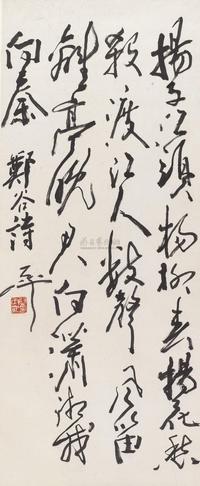 揚子江頭楊柳春楊花愁
殺渡江人數聲風笛
離亭晚君向瀟湘我
向秦
鄭谷詩